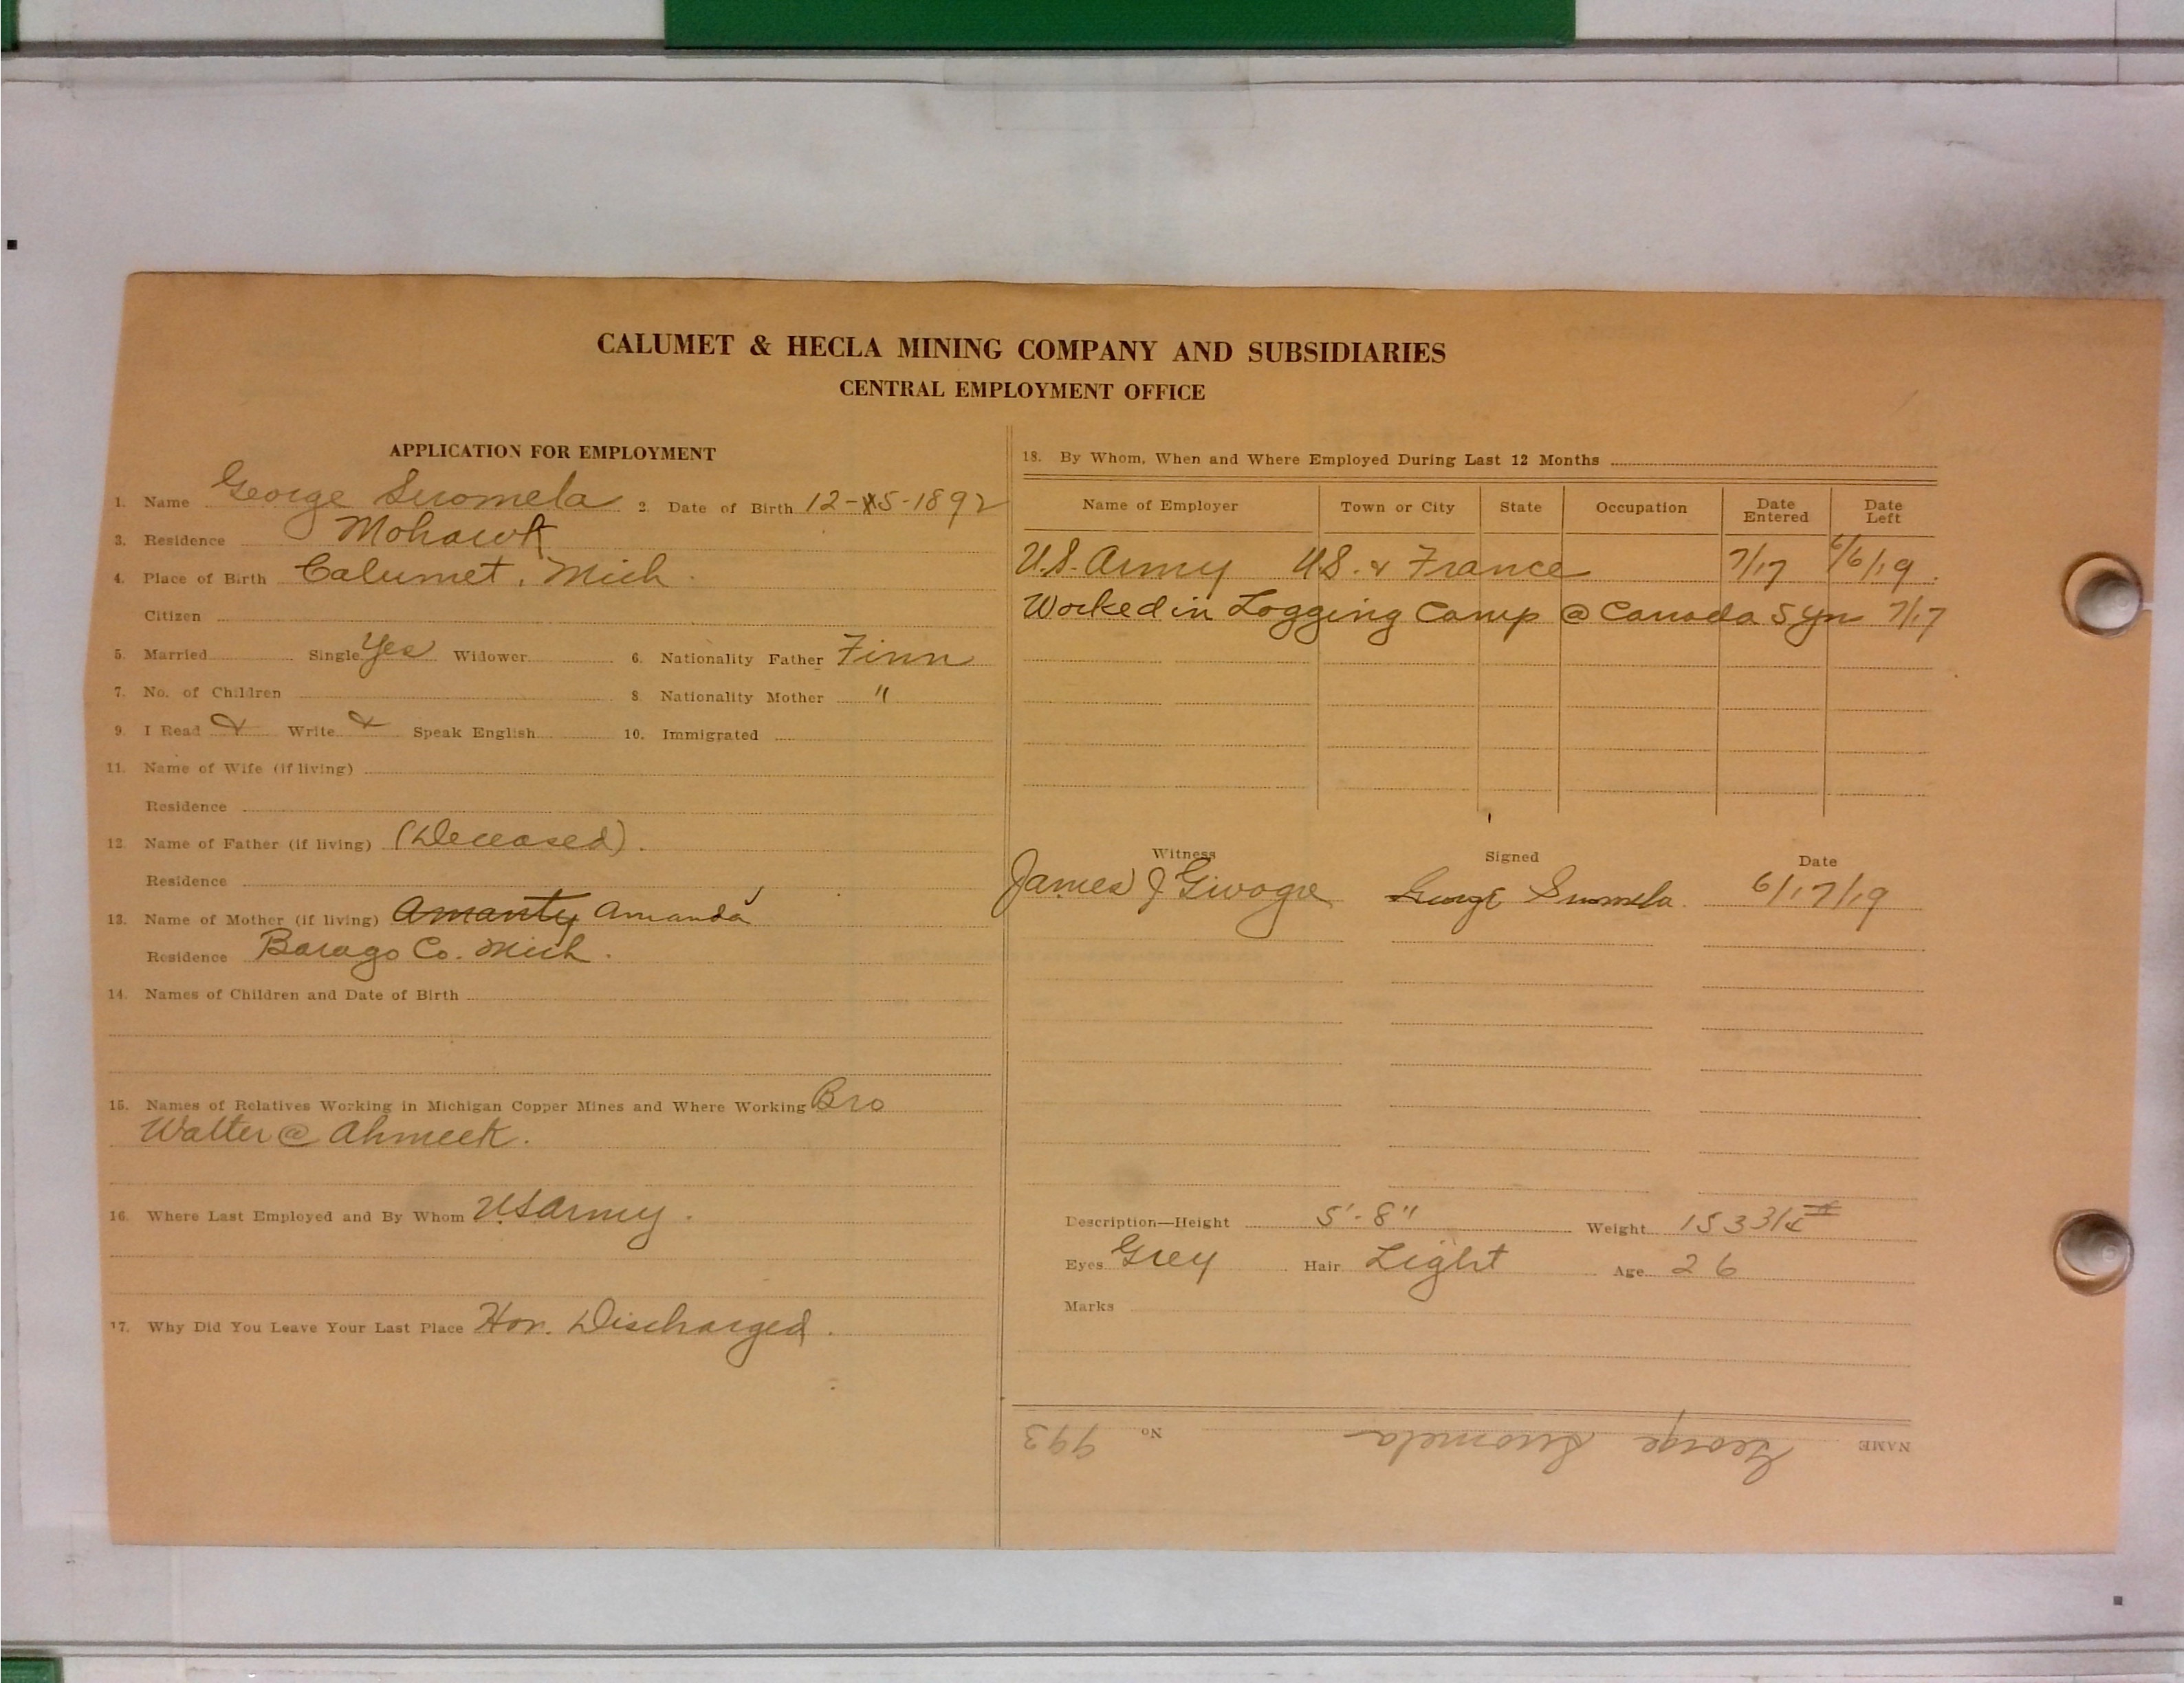 CALUMET & HECLA MINING COMPANY AND SUBSIDIARIES
CENTRAL EMPLOYMENT OFFICE
APPLICATION FOR EMPLOYMENT
1. Name George Suomela 2. Date of Birth 12-5-1892
3. Residence Mohawk
4. Place of Birth Calumet, Mich.
Citizen
5. Married Single Yes Widower 6. Nationality Father Finn
7. No. of Children 8. Nationality Mother "
9. I Read & Write & Speak English 10. Immigrated
11. Name of Wife (if living)
Residence
12. Name of Father (if living) (Deceased).
Residence
13. Name of Mother (if living) Amanty Amanda
Residence Barago Co. Mich.
14. Names of Children and Date of Birth
15. Names of Relatives Working in Michigan Copper Mines and Where Working Bro
Walter @ Ahmeek.
16. Where Last Employed and By Whom US Army.
17. Why Did You Leave Your Last Place Hon. Discharged.
18. By Whom, When and Where Employed During Last 12 Months
Name of Employer Town or City State Occupation Date Entered Date Left
U.S. Army U.S. & France 7/17 6/6/19.
Worked in Logging Camp @ Canada 5 yrs 7/17
Witness Signed Date
James J George Suomela. 6/17/19
Description—Height 5'-8" Weight 153 3/4 #
Eyes Grey Hair Light Age 26
Marks
NAME George Suomela No. 993